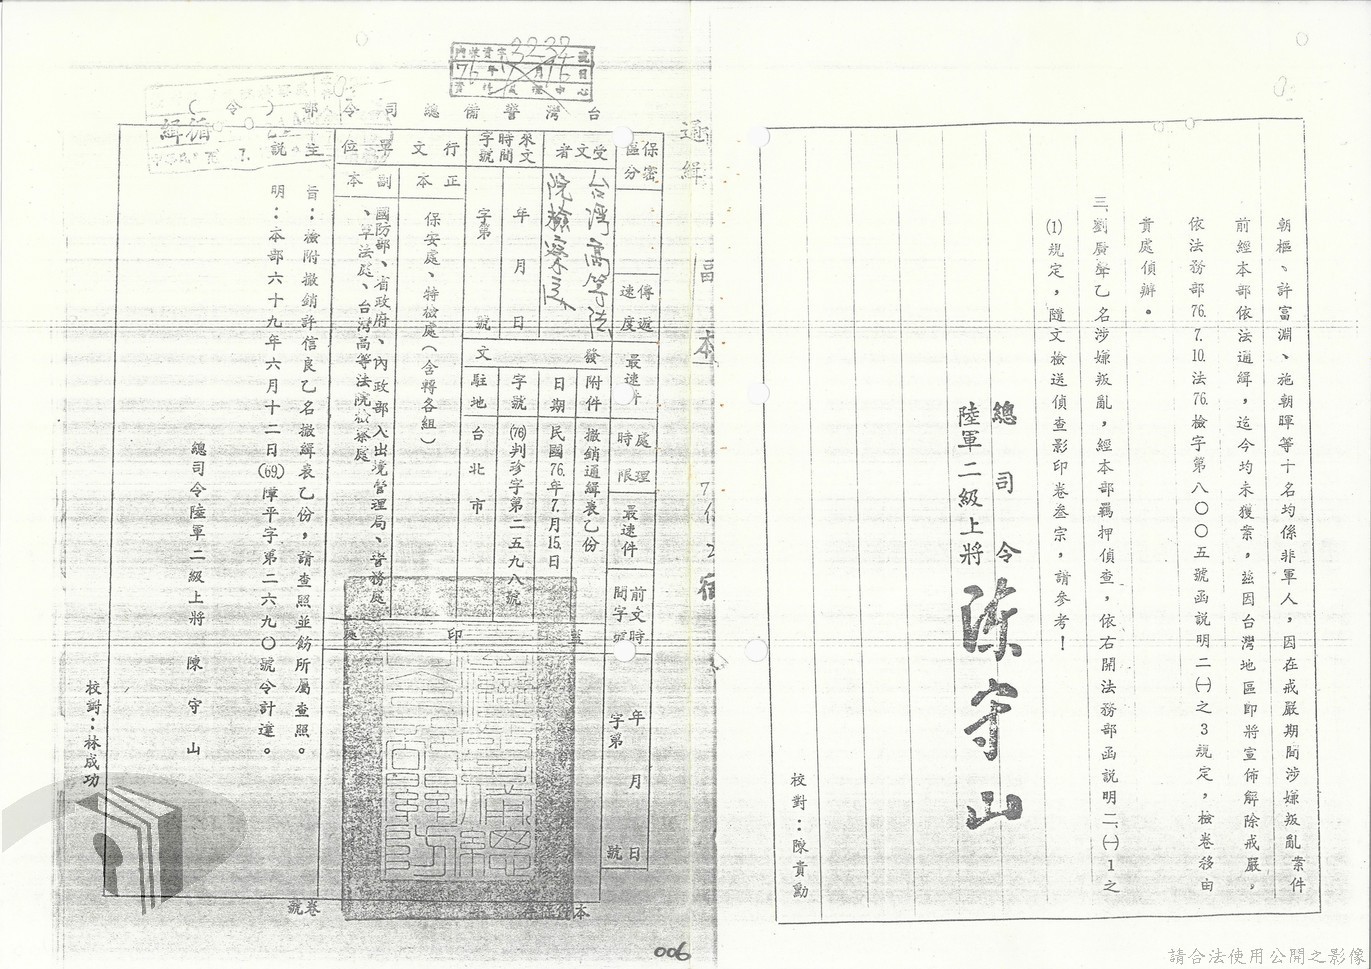 朝樞、許富淵、施朝暉等十名均係非軍人，因在戒嚴期間涉嫌叛亂案件
前經本部依法通緝，迄今均未獲案，茲因台灣地區即將宣佈解除戒嚴，
依法務部76.7.10.法76.檢字第八〇〇五號函說明二㈠之3規定，檢卷移由
貴處偵辦。
三、劉廣聲乙名涉嫌叛亂，經本部羈押偵查，依右開法務部函說明二、㈠1之
⑴規定，隨文檢送偵查影印卷叁宗，請參考！
總司令
陸軍二級上將 陳守山
校對：陳貴勳
通緝
台灣警備總司令部（令）
76年7月16日
保密區分
傳遞速度
最速件
處理時限
最速件
前文時間字號
年月日
字第號
受文者
台灣高等法院檢察處
來文時間字號
年月日
字第號
發文
附件
撤銷通緝表乙份
日期
民國76.年7.月15.日
字號
(76)判珍字第二五九八號
駐地
台北市
行文單位
正本
保安處、特檢處（含轉各組）
副本
國防部、省政府、內政部入出境管理局、警務處
、軍法庭、台灣高等法院檢察處
蓋印處
主旨：檢附撤銷許信良乙名撤緝表乙份，請查照並飭所屬查照。
說明：本部六十九年六月十二日(69)障平字第二六九〇號令計達。
總司令陸軍二級上將 陳守山
校對：林成功
卷號
006
請合法使用公開之影像